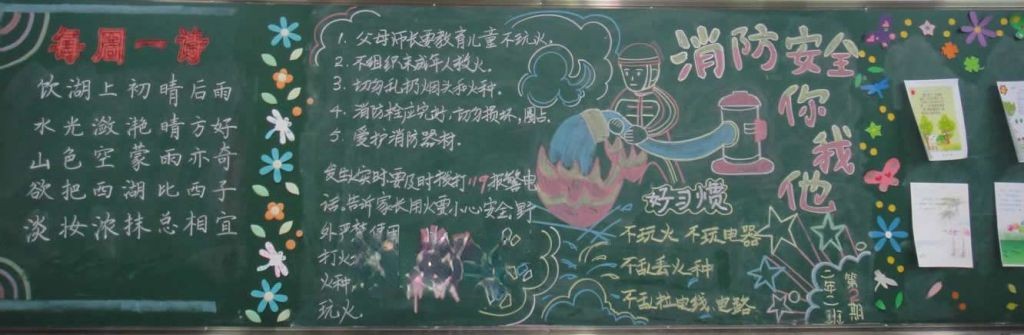 每周一诗
饮湖上初晴后雨
水光潋滟晴方好
山色空蒙雨亦奇
欲把西湖比西子
淡妆浓抹总相宜
1. 父母师长要教育儿童不玩火。
2. 不组织未成年人救火。
3. 切勿乱扔烟头和火种。
4. 消防栓应完好,切勿损坏,圈占
5 爱护消防器材.
发生火灾时要及时拨打119报警电
话,告诉家长用火要小心安全,野
外严禁使用
打火
火种,
玩火
消防安全
你我他
好习惯
不玩火 不玩电器
不乱丢火种
不乱拉电线 电路
第2期
二年二班